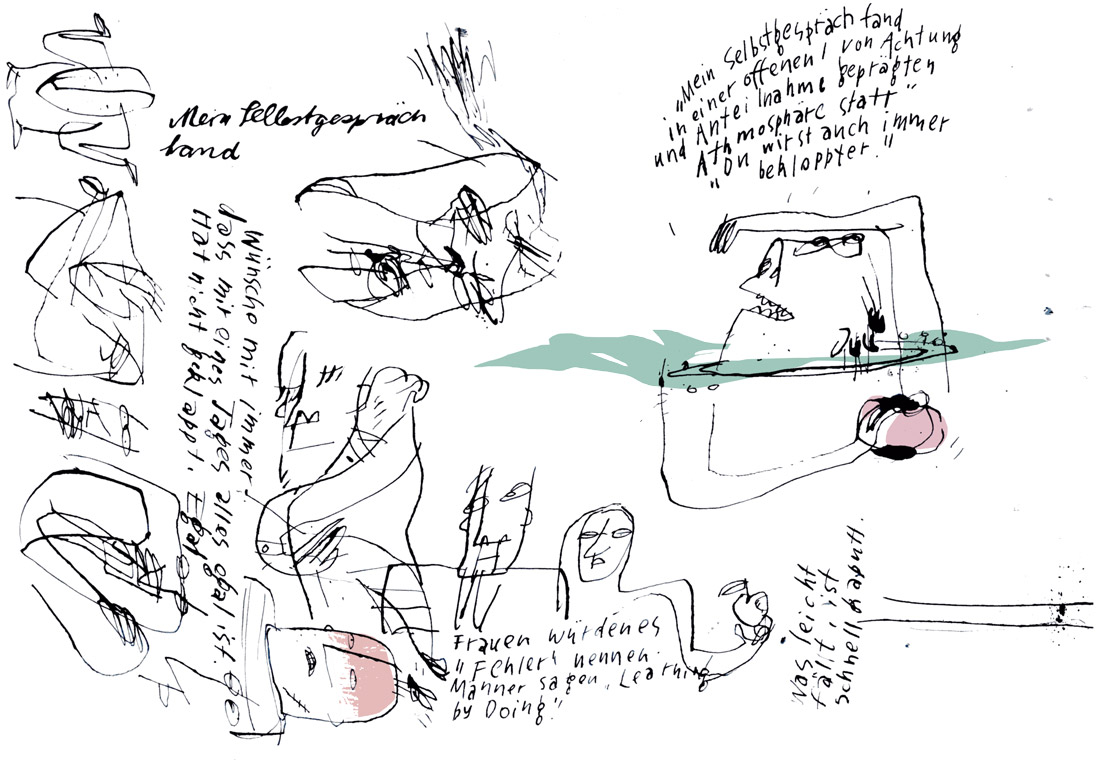 Mein Selbstgespräch
fand
„Mein Selbstgespräch fand
in einer offenen, von Achtung
und Anteilnahme geprägten
Athmosphäre statt"
"Du wirst auch immer
bekloppter."
Wünsche mir immer,
dass mir eines Tages alles egal ist.
Hat nicht geklappt. Egal
Frauen würden es
"Fehler" nennen.
Männer sagen „Learning
by Doing".
Was leicht
fällt, ist
schnell kaputt.